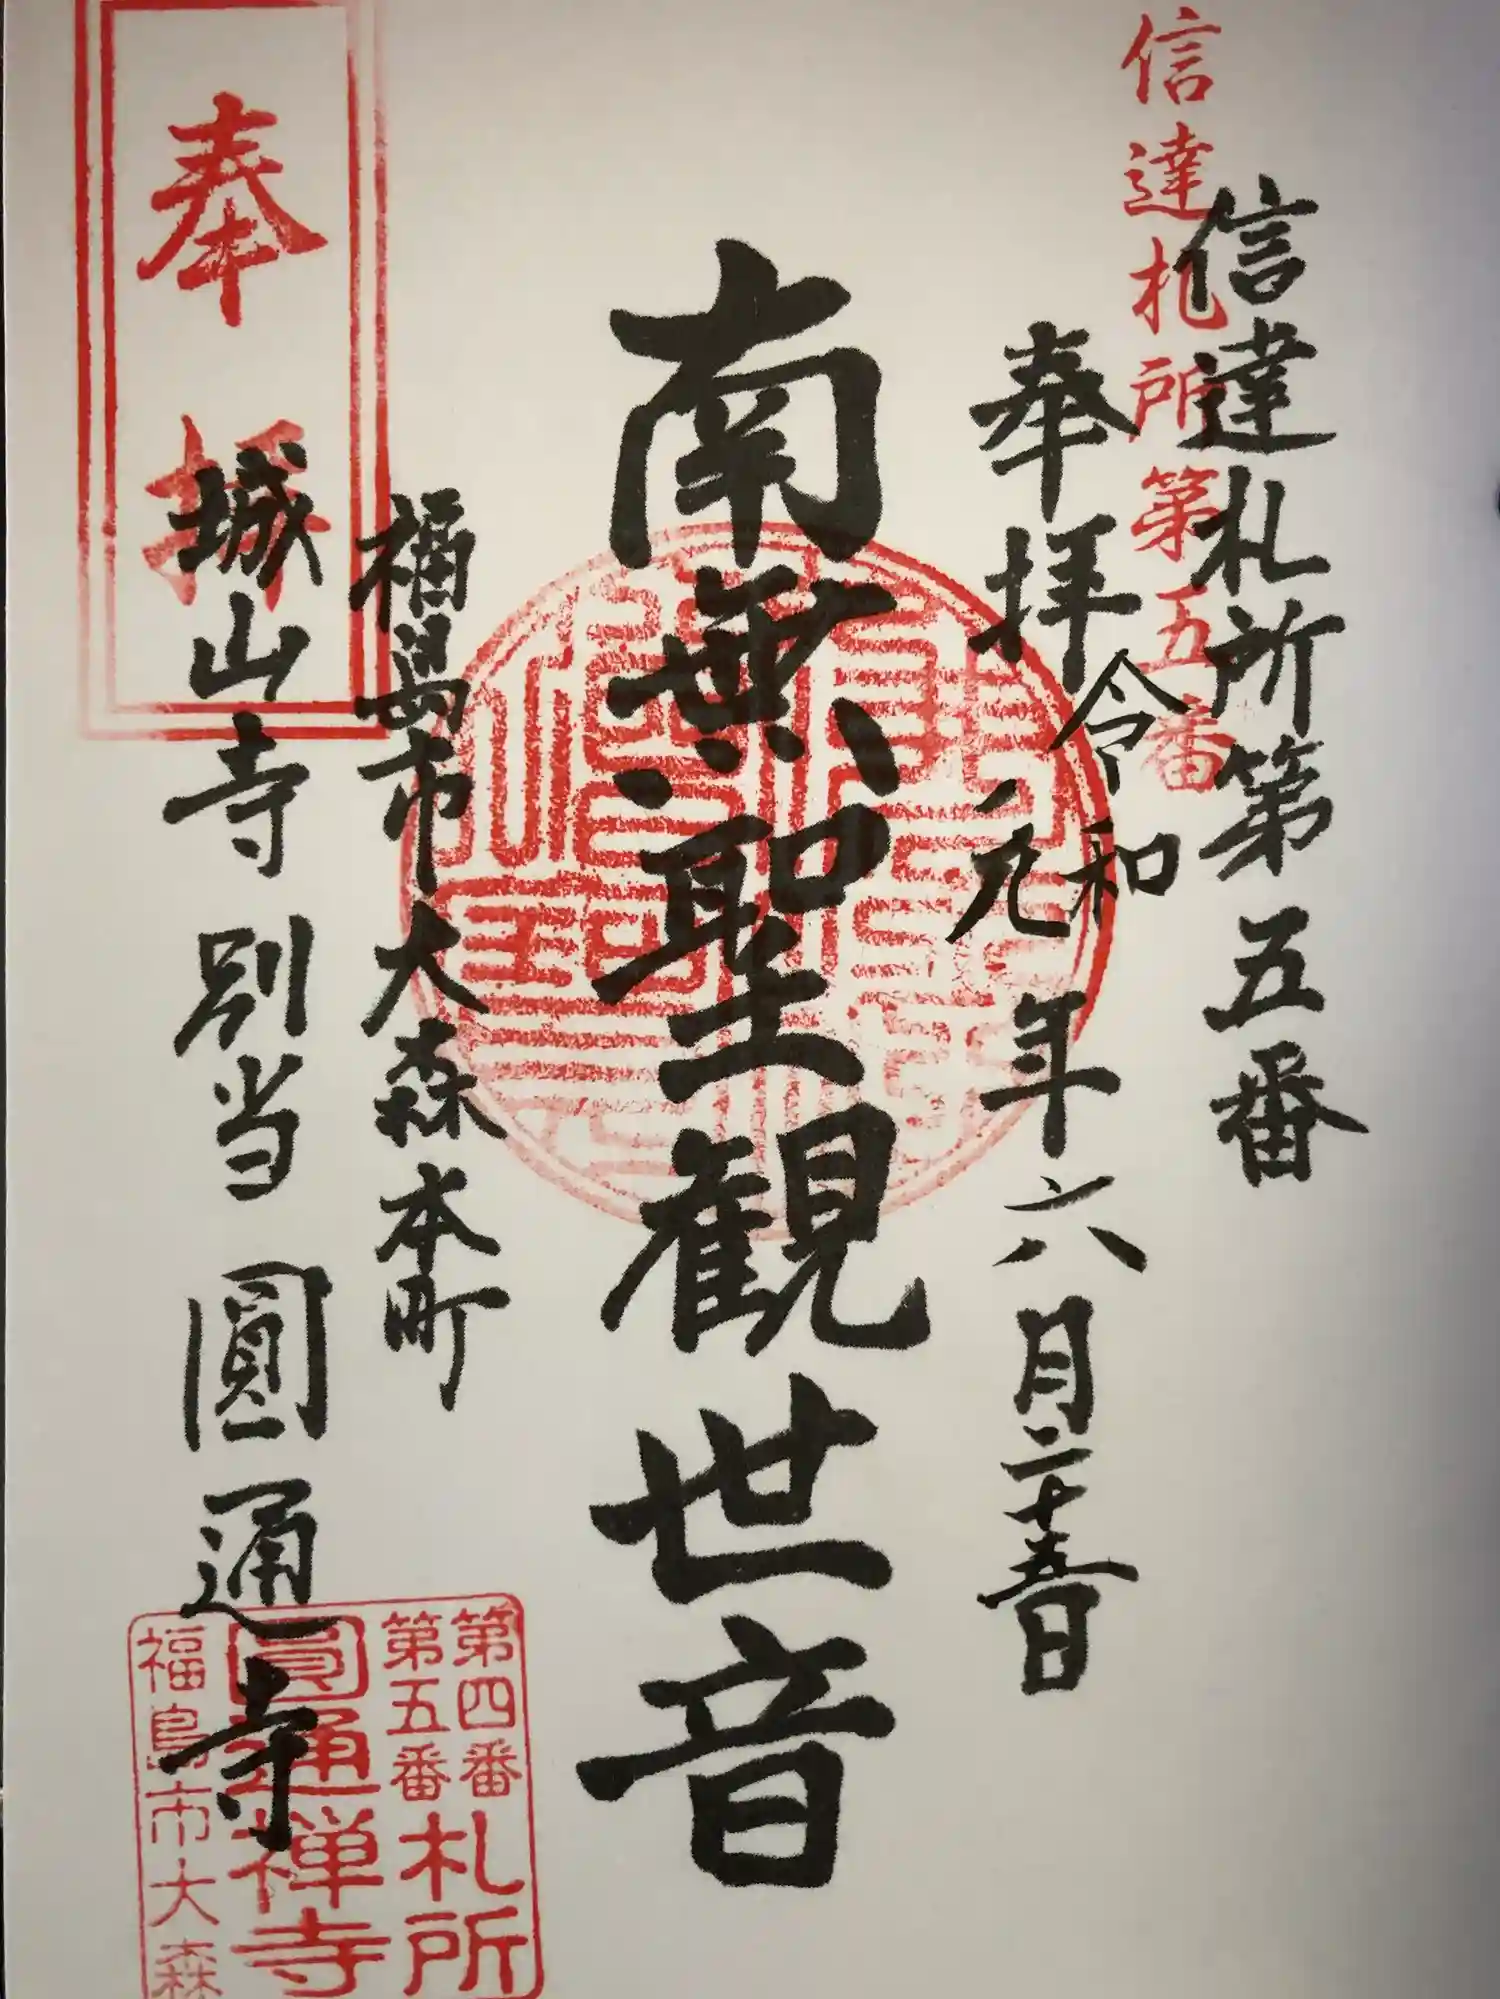 信達札所第五番
信達札所第五番
奉拝
令和元年六月二十五日
南無聖観世音
福島市大森本町
城山寺別当圓通寺
奉拝
第四番
第五番
札所
圓通禅寺
福島市大森